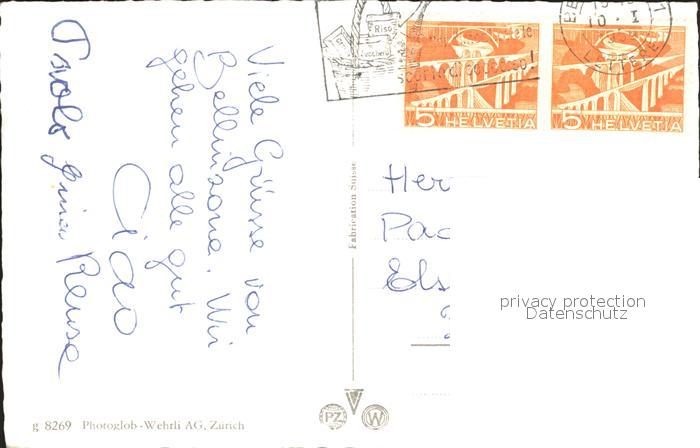 Viele Grüsse von
Bellinzona. Wir
gehen alle gut
Ciao
Her
Pac
Els
privacy protection
Datenschutz
Fabrication Suisse
Riso
Zucchero
5 HELVETIA
5 HELVETIA
PZ
W
g 8269 Photoglob-Wehrli AG, Zürich